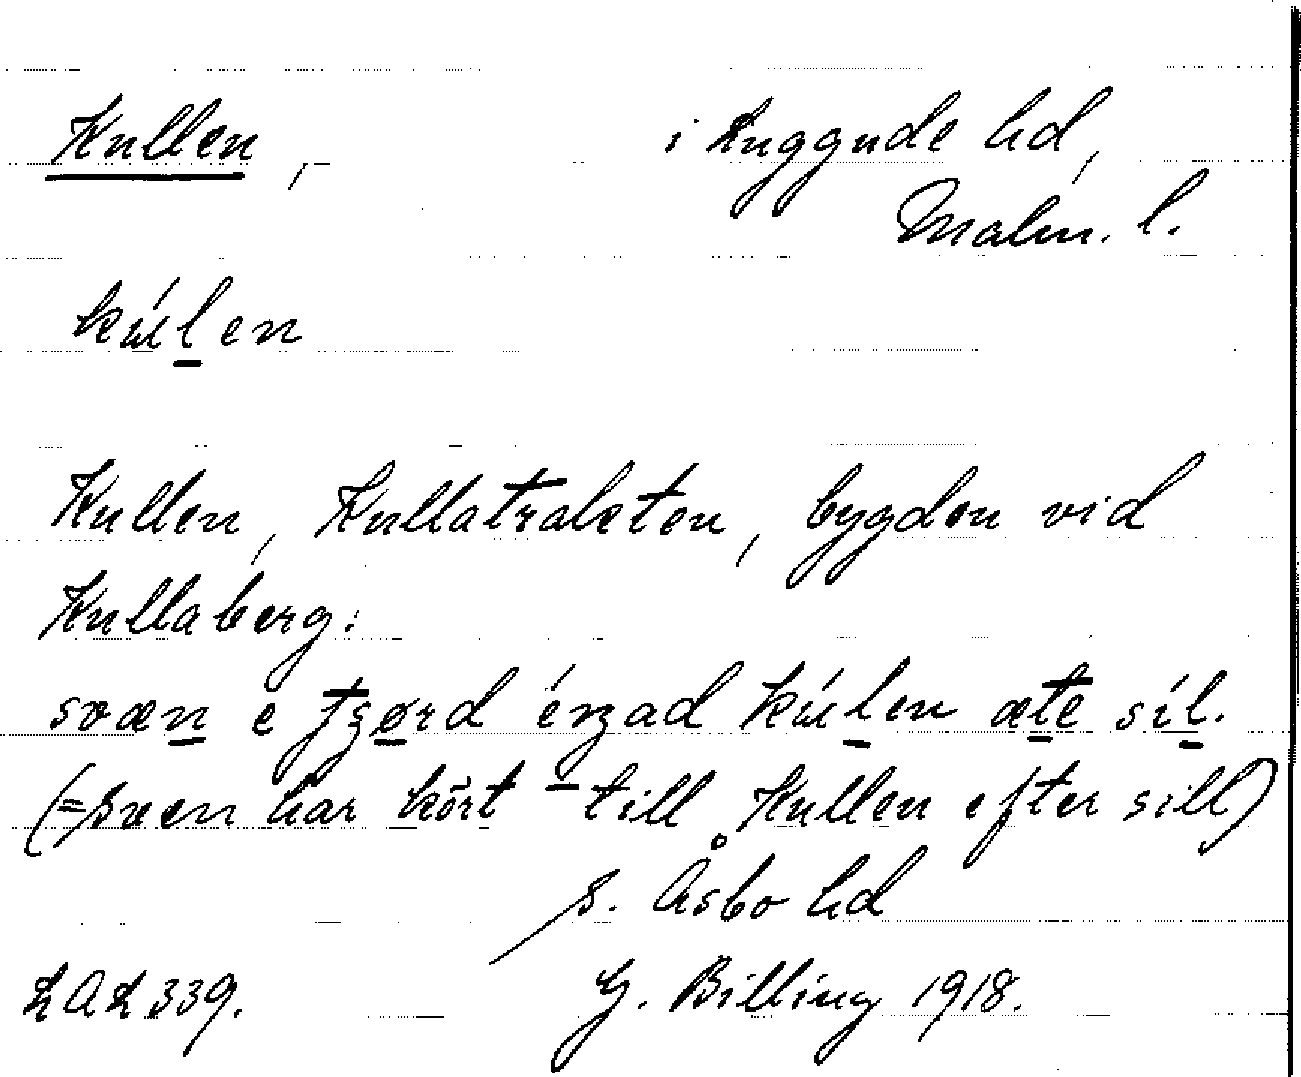 Kullen, i Luggude hd,
Malm. l.
kúlen
Kullen, Kullatrakten, bygden vid
Kullaberg:
svæn e kúlen æte síl.
(= Sven har kört till Kullen efter sill)
S. Åsbo hd
LAL 339. G. Billing 1918.